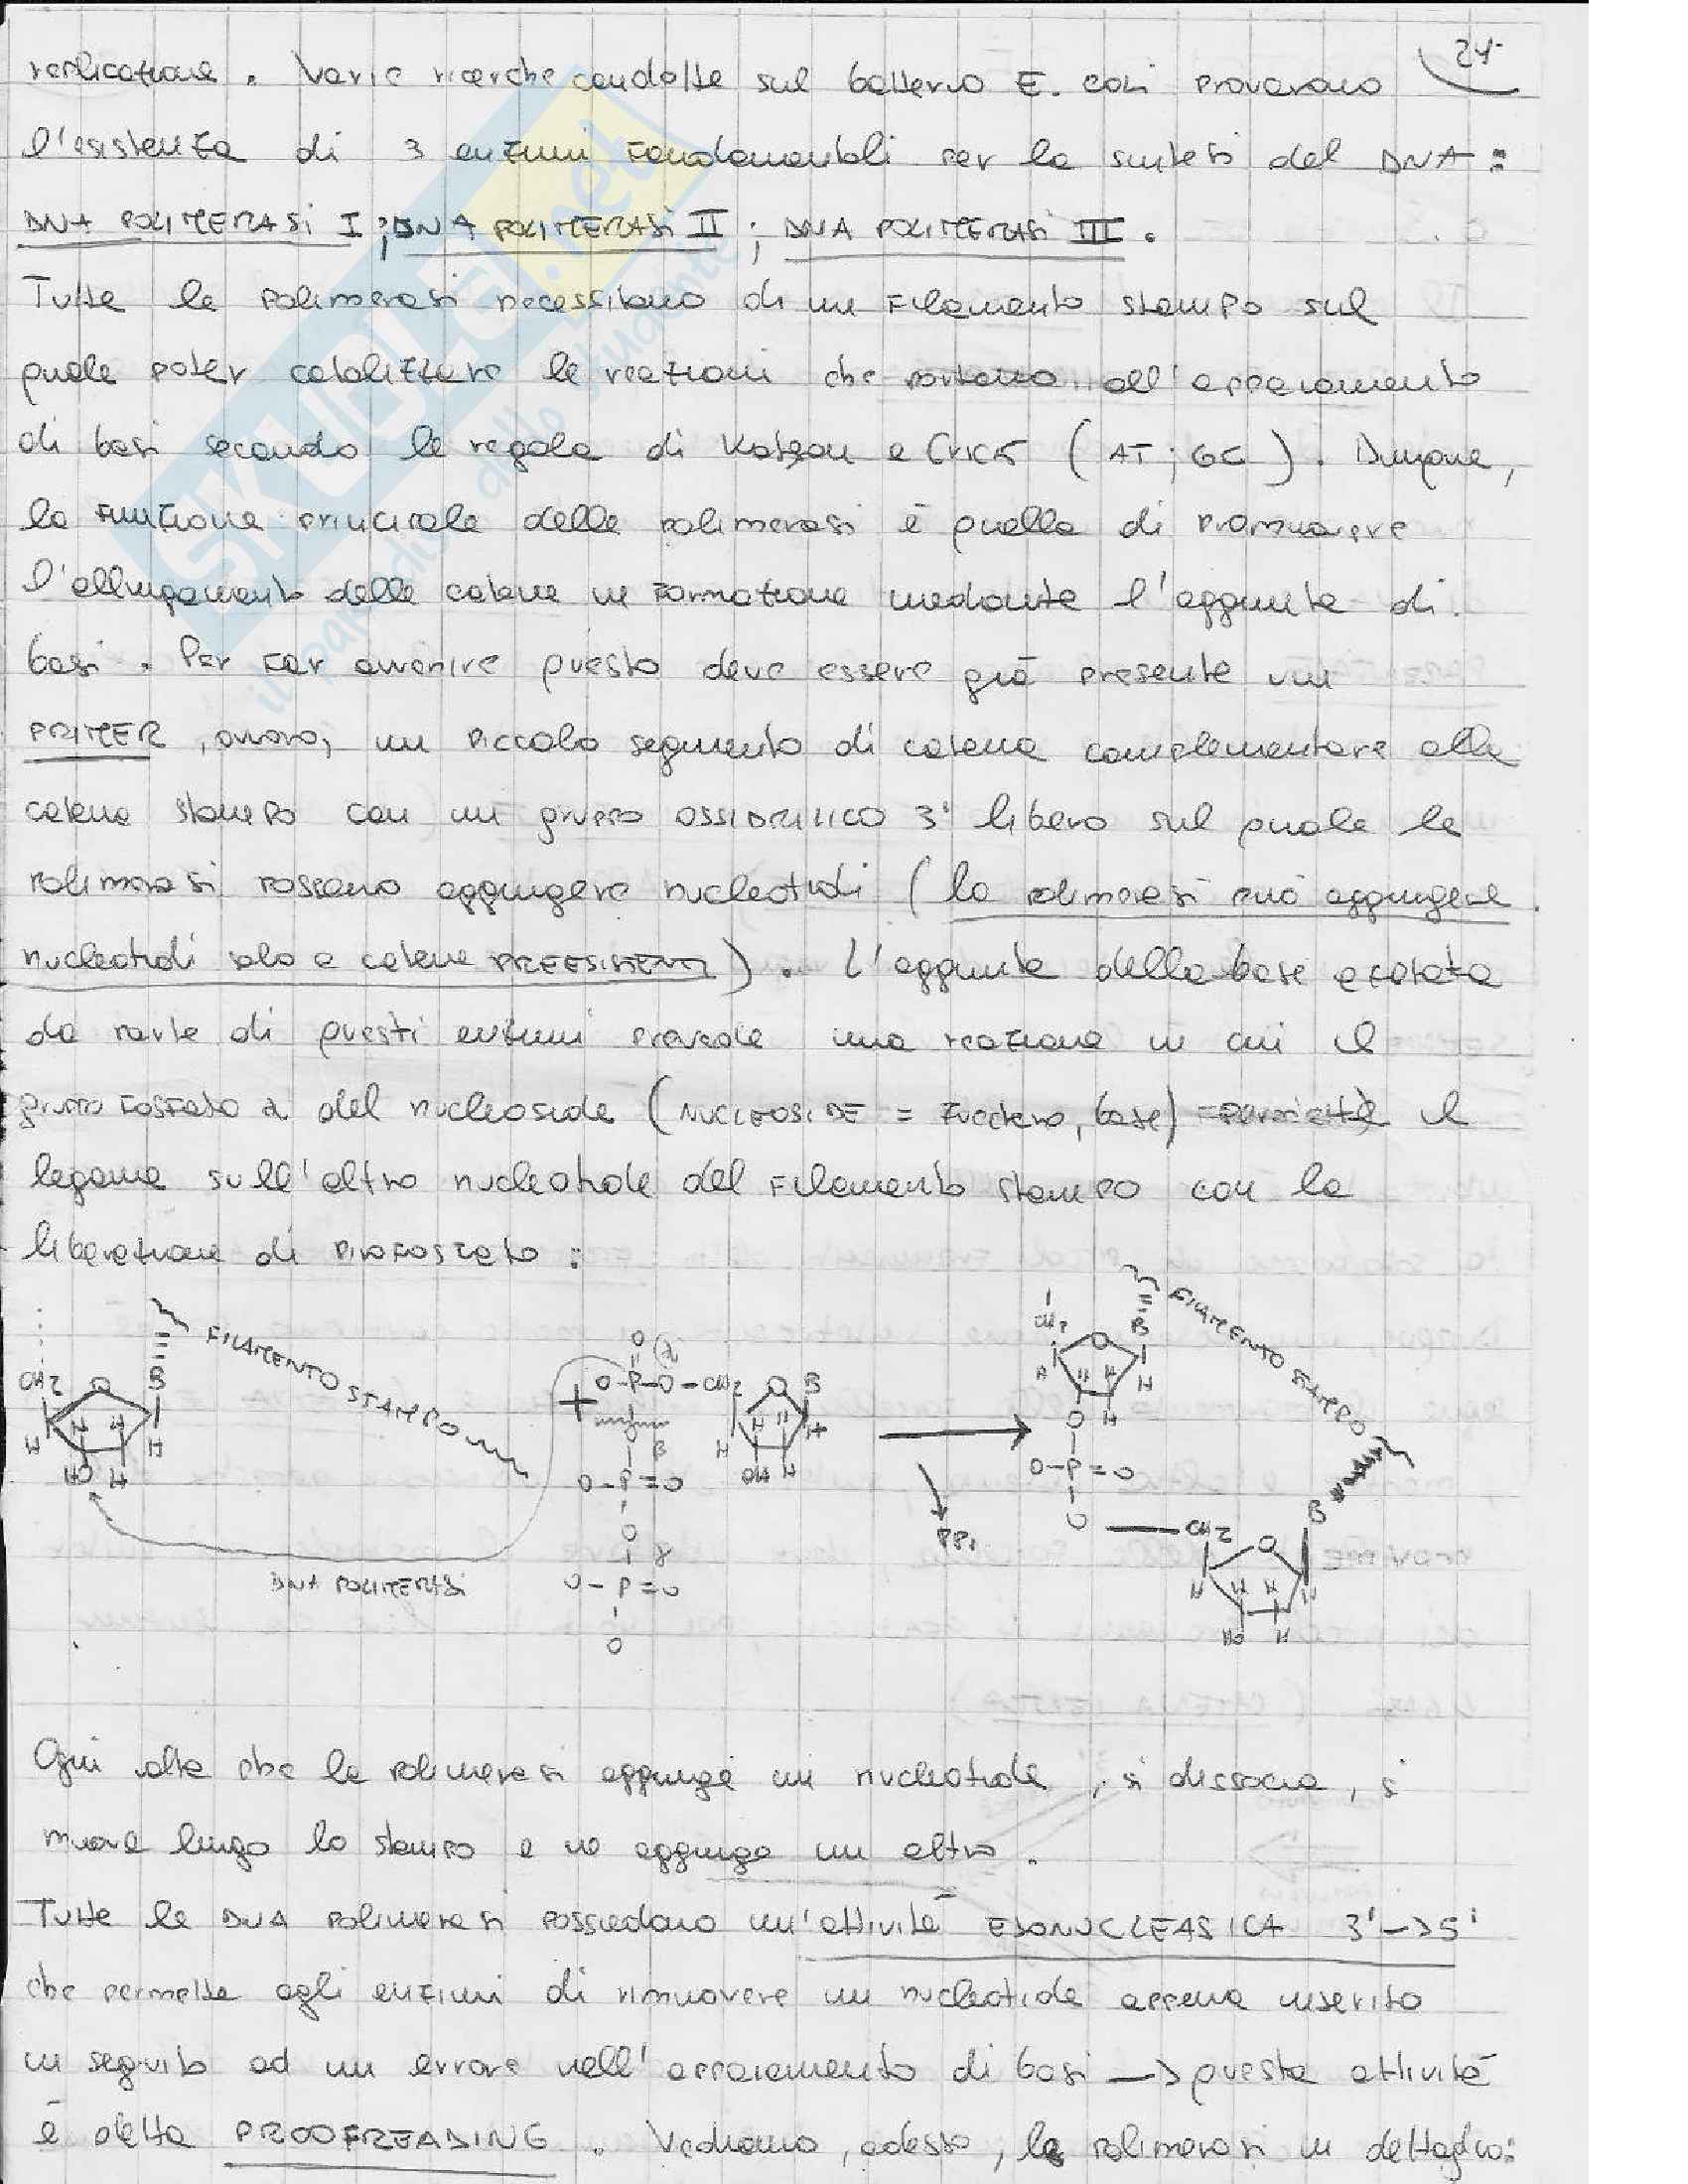 24
replicazione. Varie ricerche condotte sul batterio E. coli provarono
l'esistenza di 3 enzimi fondamentali per la sintesi del DNA:
DNA POLIMERASI I ; DNA POLIMERASI II ; DNA POLIMERASI III.
Tutte le polimerasi necessitano di un filamento stampo sul
quale poter catalizzare le reazioni che portano all'appaiamento
di basi secondo le regole di Watson e Crick (AT ; GC). Dunque,
la funzione principale delle polimerasi è quella di promuovere
l'allungamento delle catene in formazione mediante l'aggiunta di
basi. Per far avvenire questo deve essere già presente un
PRIMER, ovvero, un piccolo segmento di catena complementare alla
catena stampo con un gruppo OSSIDRILICO 3' libero sul quale le
polimerasi possono aggiungere nucleotidi (la polimerasi può aggiungere
nucleotidi solo a catene PREESISTENTI). L'aggiunta della base
da parte di questi enzimi prevede una reazione in cui il
gruppo fosfato α del nucleoside (NUCLEOSIDE = zucchero, base) il
legame sull'altro nucleotide del filamento stampo con la
liberazione di pirofosfato:
FILAMENTO STAMPO
CH2 O B
H H H H
HO H
DNA POLIMERASI
+
O (α)
O-P-O-CH2 O B
H H H H
OH H
β
O-P=O
O
γ
O-P=O
O
PPi
FILAMENTO STAMPO
CH2 O B
H H H H
O H
O-P=O
O — CH2 O B
H H H H
HO H
Ogni volta che la polimerasi aggiunge un nucleotide, si dissocia, si
muove lungo lo stampo e ne aggiunge un altro.
Tutte le DNA polimerasi possiedono un'attività ESONUCLEASICA 3'->5'
che permette agli enzimi di rimuovere un nucleotide appena inserito
in seguito ad un errore nell'appaiamento di basi —> questa attività
è detta PROOFREADING. Vediamo, adesso, le polimerasi in dettaglio:
SKUOLA.net
il paradiso dello studente